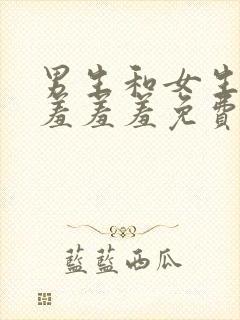 男生和女生
羞羞羞免費
藍藍西瓜